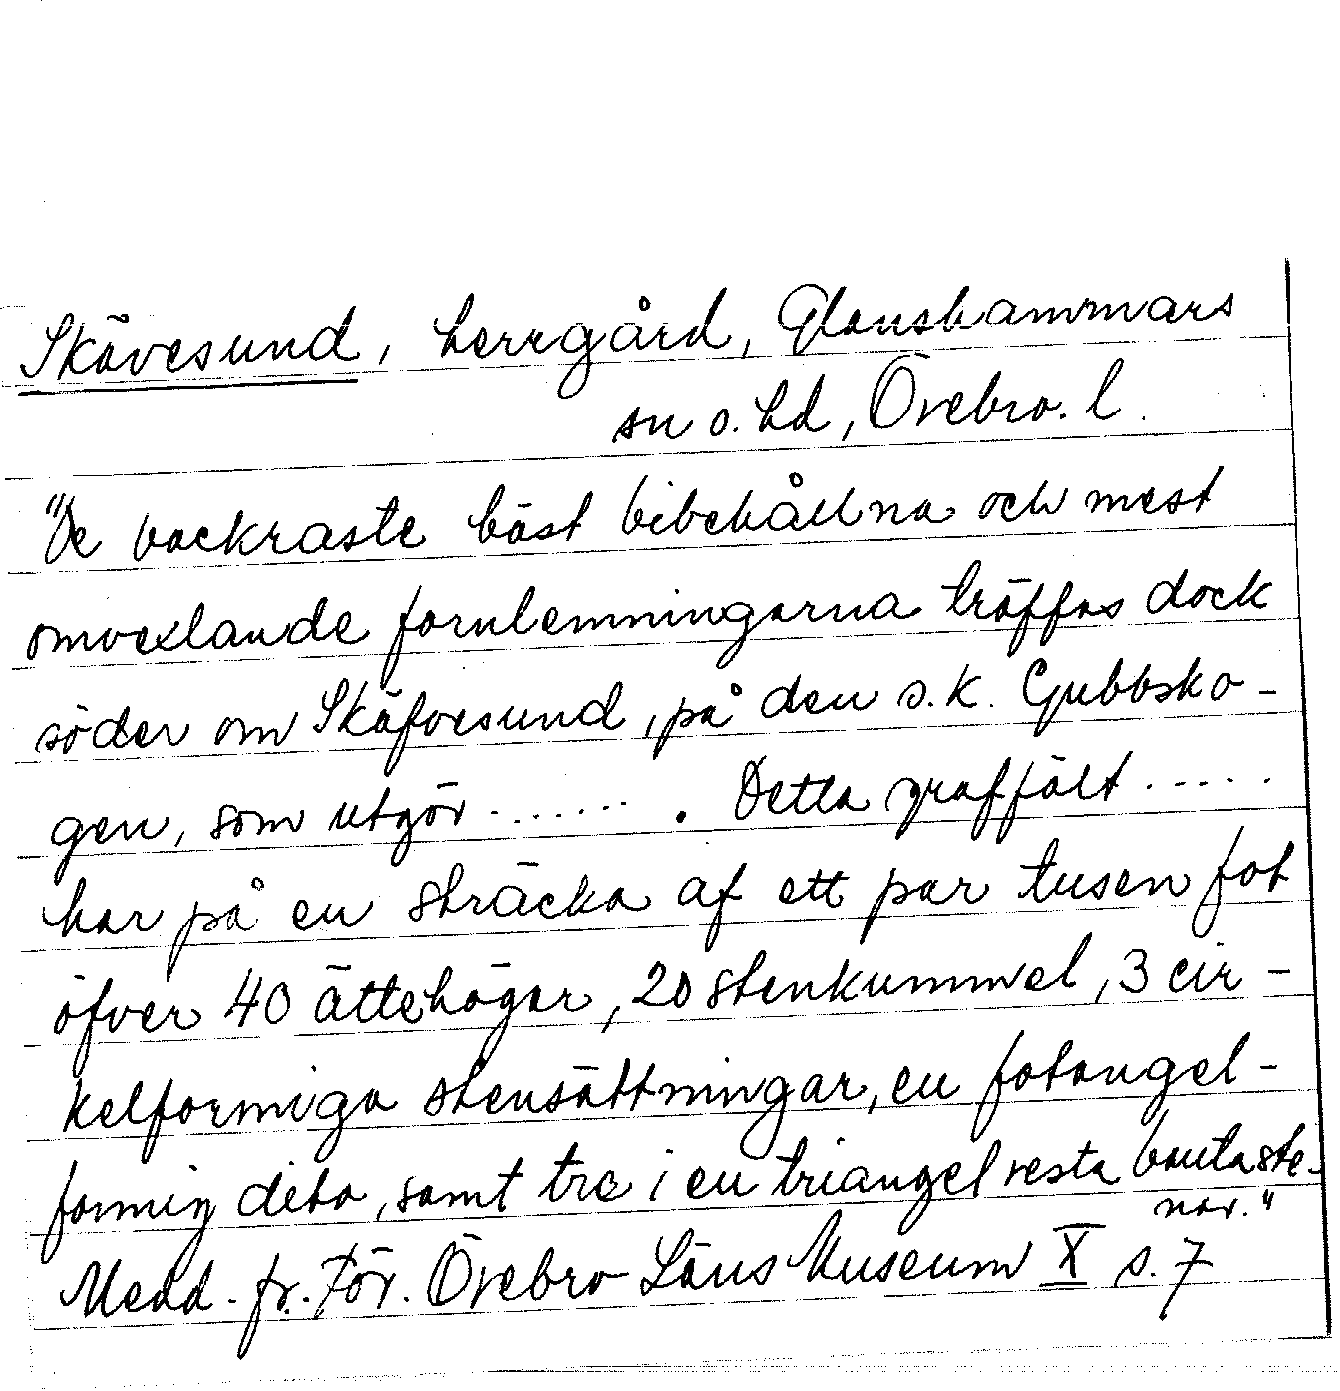 Skävesund, herrgård, Glanshammars
sn o. hd, Örebro. l.
"De vackraste bäst bibehållna och mest
omvexlande fornlemningarna träffas dock
söder om Skäfvesund, på den s.k. Gubbsko-
gen, som utgör ...... . Detta graffält .....
har på en sträcka af ett par tusen fot
öfver 40 ättehögar, 20 stenkummel, 3 cir-
kelformiga stensättningar, en fotangel-
formig dito, samt tre i en triangel resta bautaste-
nar."
Medd. fr. För. Örebro Läns Museum X s. 7